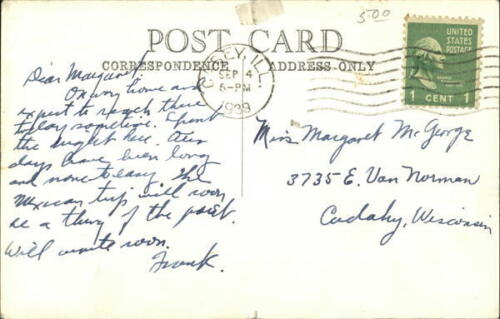 5.00
POST CARD
CORRESPONDENCE
ADDRESS ONLY
EY, ILL.
SEP 4
5-PM
1939
UNITED
STATES
POSTAGE
1 CENT 1
Dear Margaret,
On my way home and
expect to reach there
today sometime. Spent
the night here. Our
days have been long
and none to easy. The
Mexican trip will soon
be a thing of the past.
Will write soon.
Frank.
Miss Margaret McGeorge
3735 E. Van Norman
Cudahy, Wisconsin